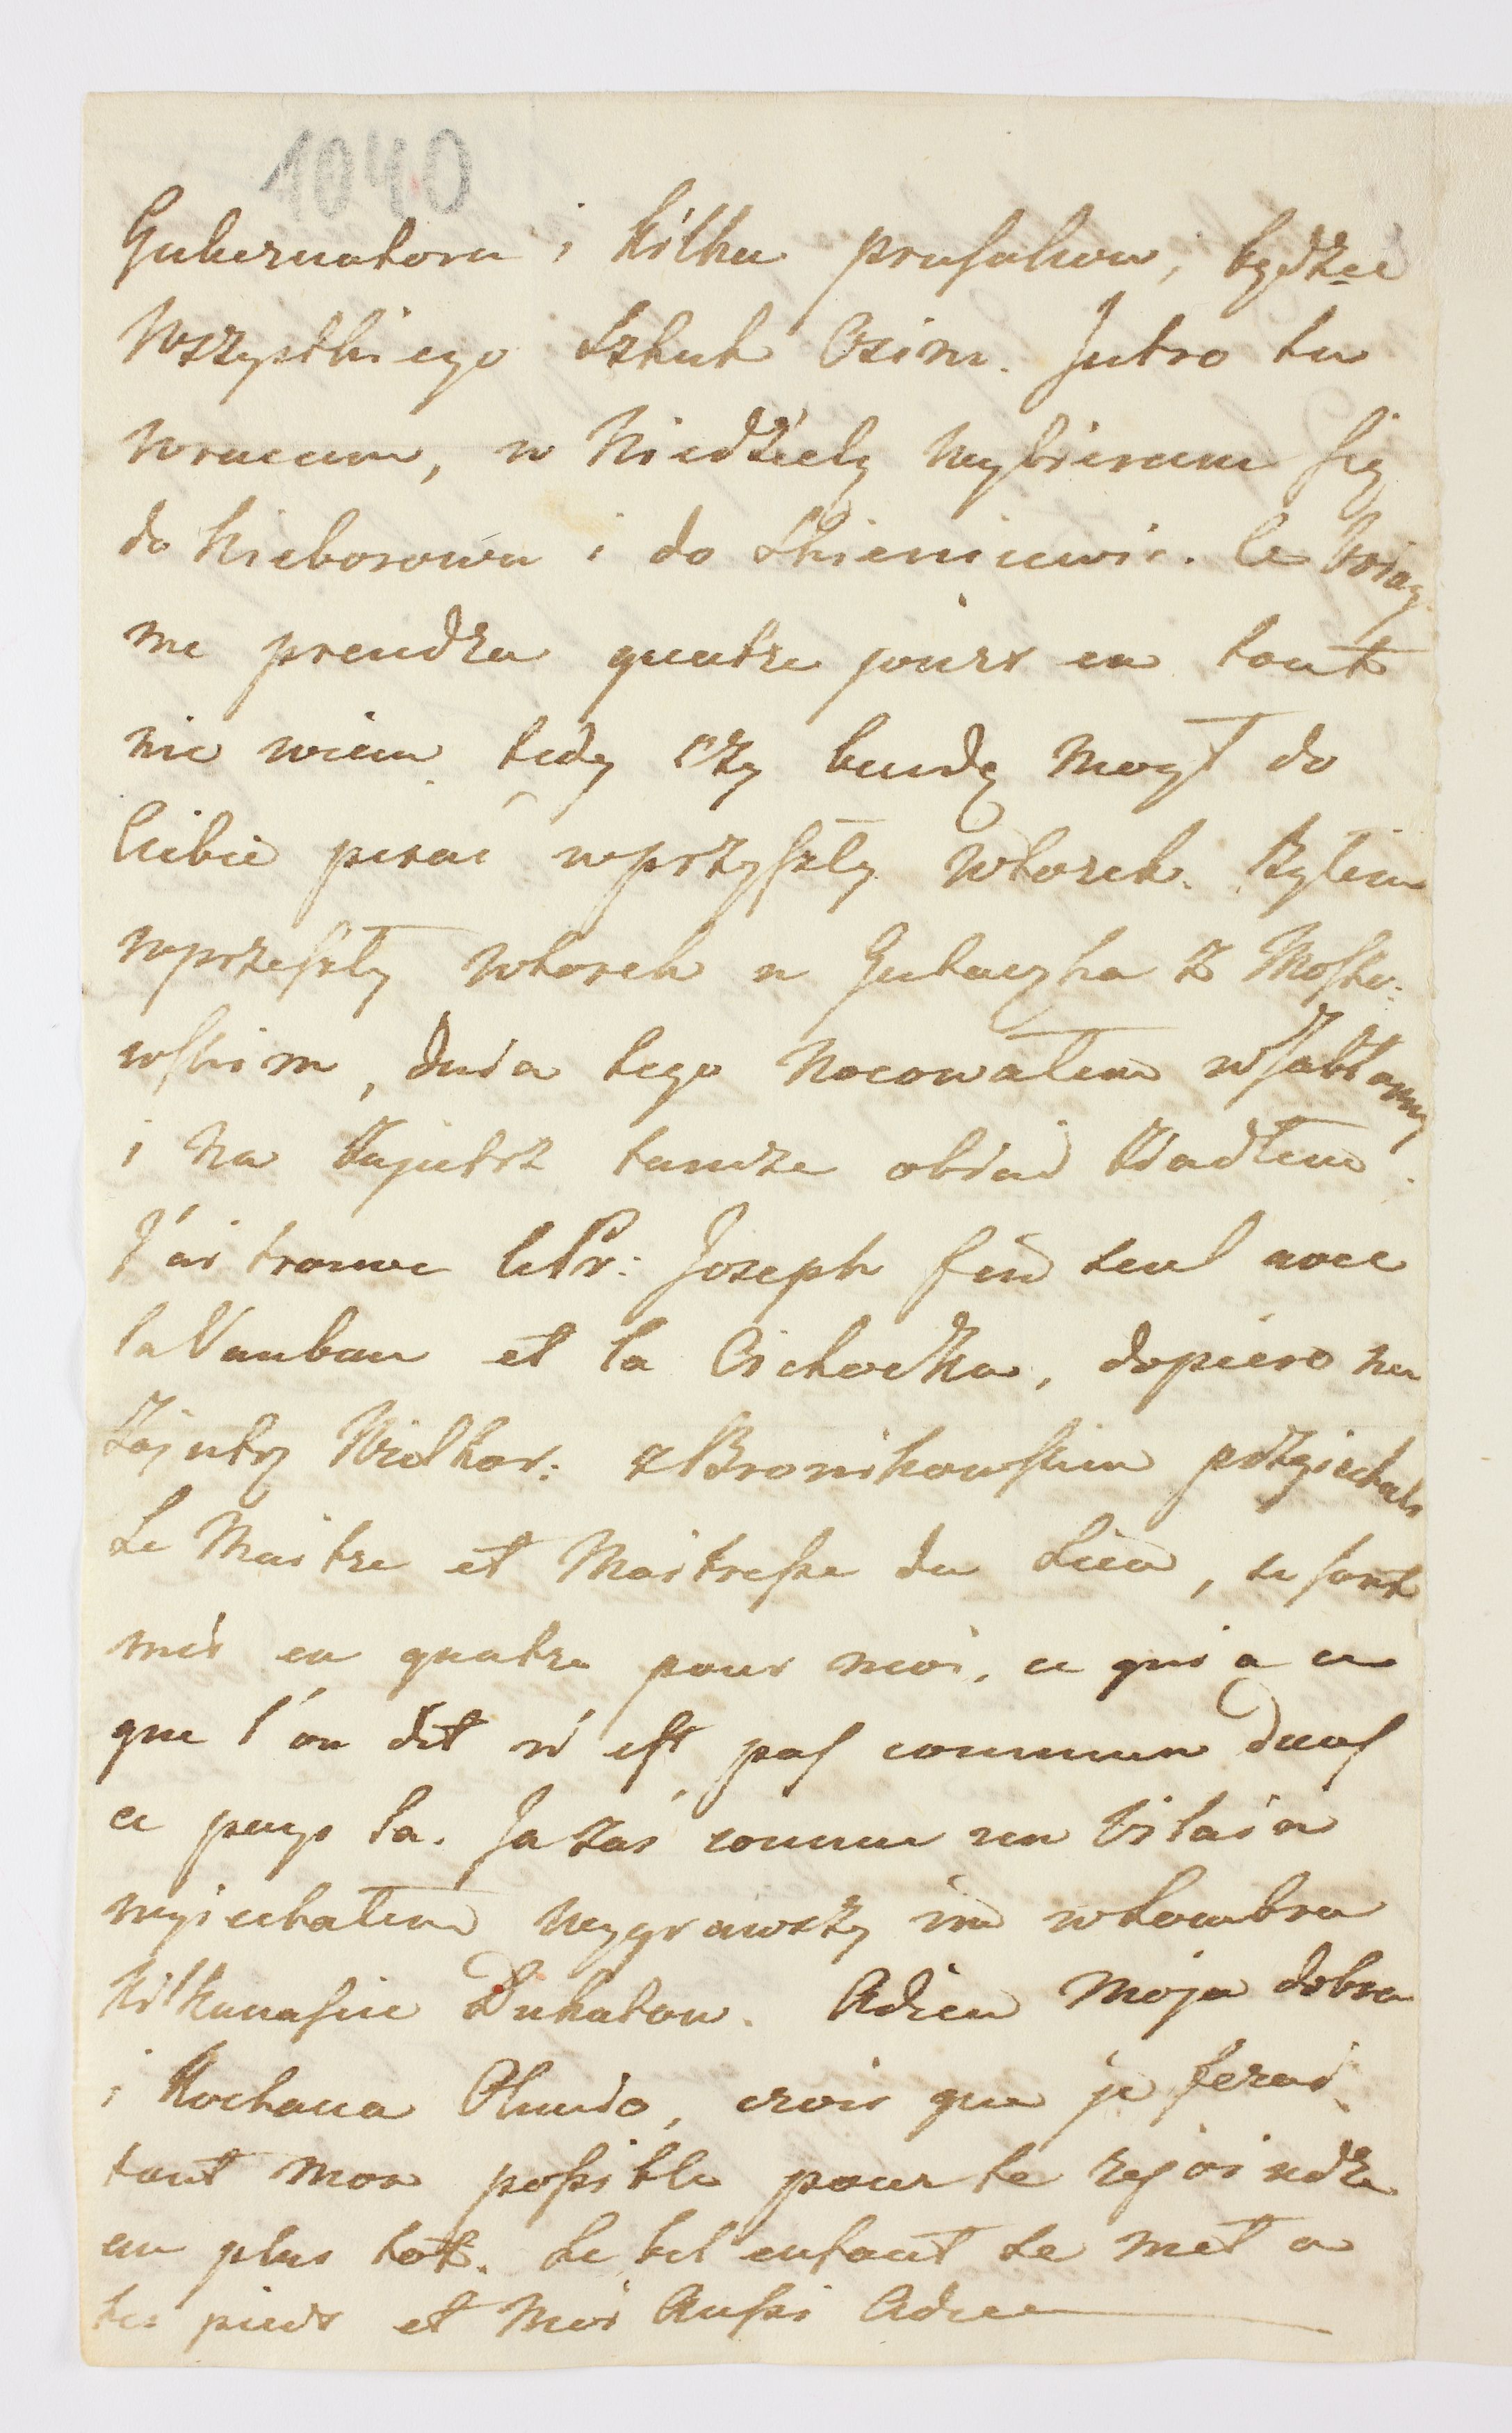 1040
Gubernatora i kilku prusakow, będżie
wszystkiego sztuk Osim. Jutro tu
wracam, w Niedźielę wybieram się
do Nieborowa i do Skierniewic. Ce
me prendra quatre jours en tout
nie wiem tedy czy bendę mogł do
Ciebie pisać wprzyszły wtorek. Byłem
wprzeszły wtorek u Gutaczka z Mosto:
wskim, dnia tego nocowałem w Jabłonny
i na zajutrz tamże obiad jadłem.
J'ai trouvé le Pr: Joseph fin seul avec
la Vauban et la Cichocka, dopiero na
Zajutrz Wielhor: z Bronikowskim przyiechali
Le Maitre et Maitresse du Lieu, se sont
mis en quatre pour moi, ce qui a ce
que l'on dit n'est pas commun dans
ce pays la. Ja zaś comme un vilain
wyiechałem wygrawszy im w tombra
kilkanaście Dukatow. Adieu moja dobra
i kochana Olunio, crois que je ferai
tout mon possible pour te rejoindre
au plus tot. Le bel enfant se met a
tes pieds et moi aussi Adieu